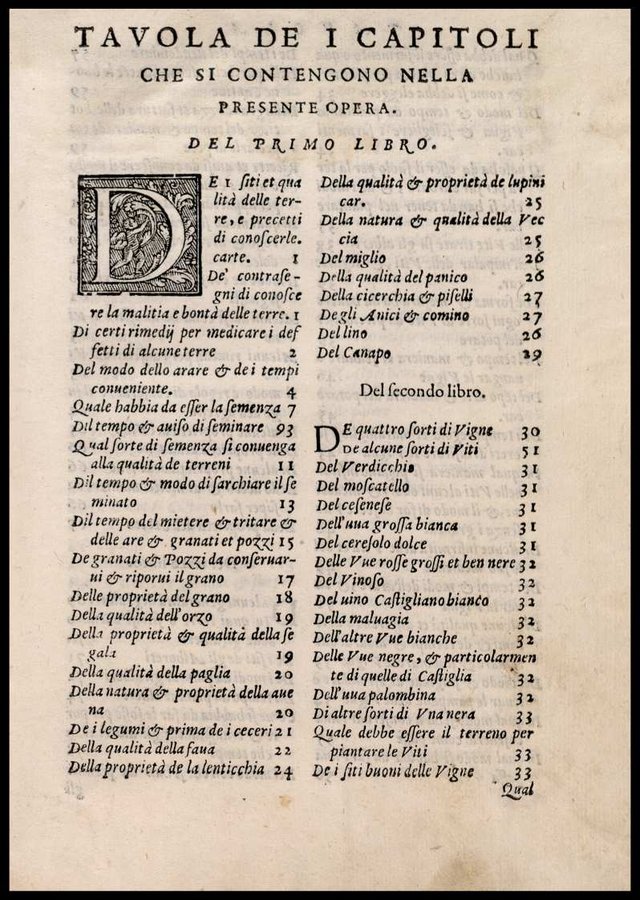 TAVOLA DE I CAPITOLI
CHE SI CONTENGONO NELLA
PRESENTE OPERA.
DEL PRIMO LIBRO.
DE I ſiti et qua
lità delle ter-
re, e precetti
di conoſcerle.
carte. 1
De' contraſe-
gni di conoſce
re la malitia e bontà delle terre. 1
Di certi rimedij per medicare i def
fetti di alcune terre 2
Del modo dello arare & de i tempi
conueniente. 4
Quale habbia da eſſer la ſemenza 7
Dil tempo & auiſo di ſeminare 93
Qual ſorte di ſemenza ſi conuenga
alla qualità de terreni 11
Dil tempo & modo di ſarchiare il ſe
minato 13
Dil tempo del mietere & tritare &
delle are & granati et pozzi 15
De granati & Pozzi da conſeruar-
ui & riporui il grano 17
Delle proprietà del grano 18
Della qualità dell'orzo 19
Della proprietà & qualità della ſe
gala 19
Della qualità della paglia 20
Della natura & proprietà della aue
na 20
De i legumi & prima de i ceceri 21
Della qualità della faua 22
Della proprietà de la lenticchia 24
Della qualità & proprietà de lupini
car. 25
Della natura & qualità della Vec
cia 25
Del miglio 26
Della qualità del panico 26
Della cicerchia & piſelli 27
De gli Anici & comino 27
Del lino 26
Del Canapo 29
Del ſecondo libro.
DE quattro ſorti di Vigne 30
De alcune ſorti di Viti 51
Del Verdicchio 31
Del moſcatello 31
Del ceſeneſe 31
Dell'uua groſſa bianca 31
Del cereſolo dolce 31
Delle Vue roſſe groſſi et ben nere 32
Del Vinoſo 32
Del uino Caſtigliano bianco 32
Della maluagia 32
Dell'altre Vue bianche 32
Delle Vue negre, & particolarmen
te di quelle di Caſtiglia 32
Dell'uua palombina 32
Di altre ſorti di Vua nera 33
Quale debbe eſſere il terreno per
piantare le Viti 33
De i ſiti buoni delle Vigne 33
Qual